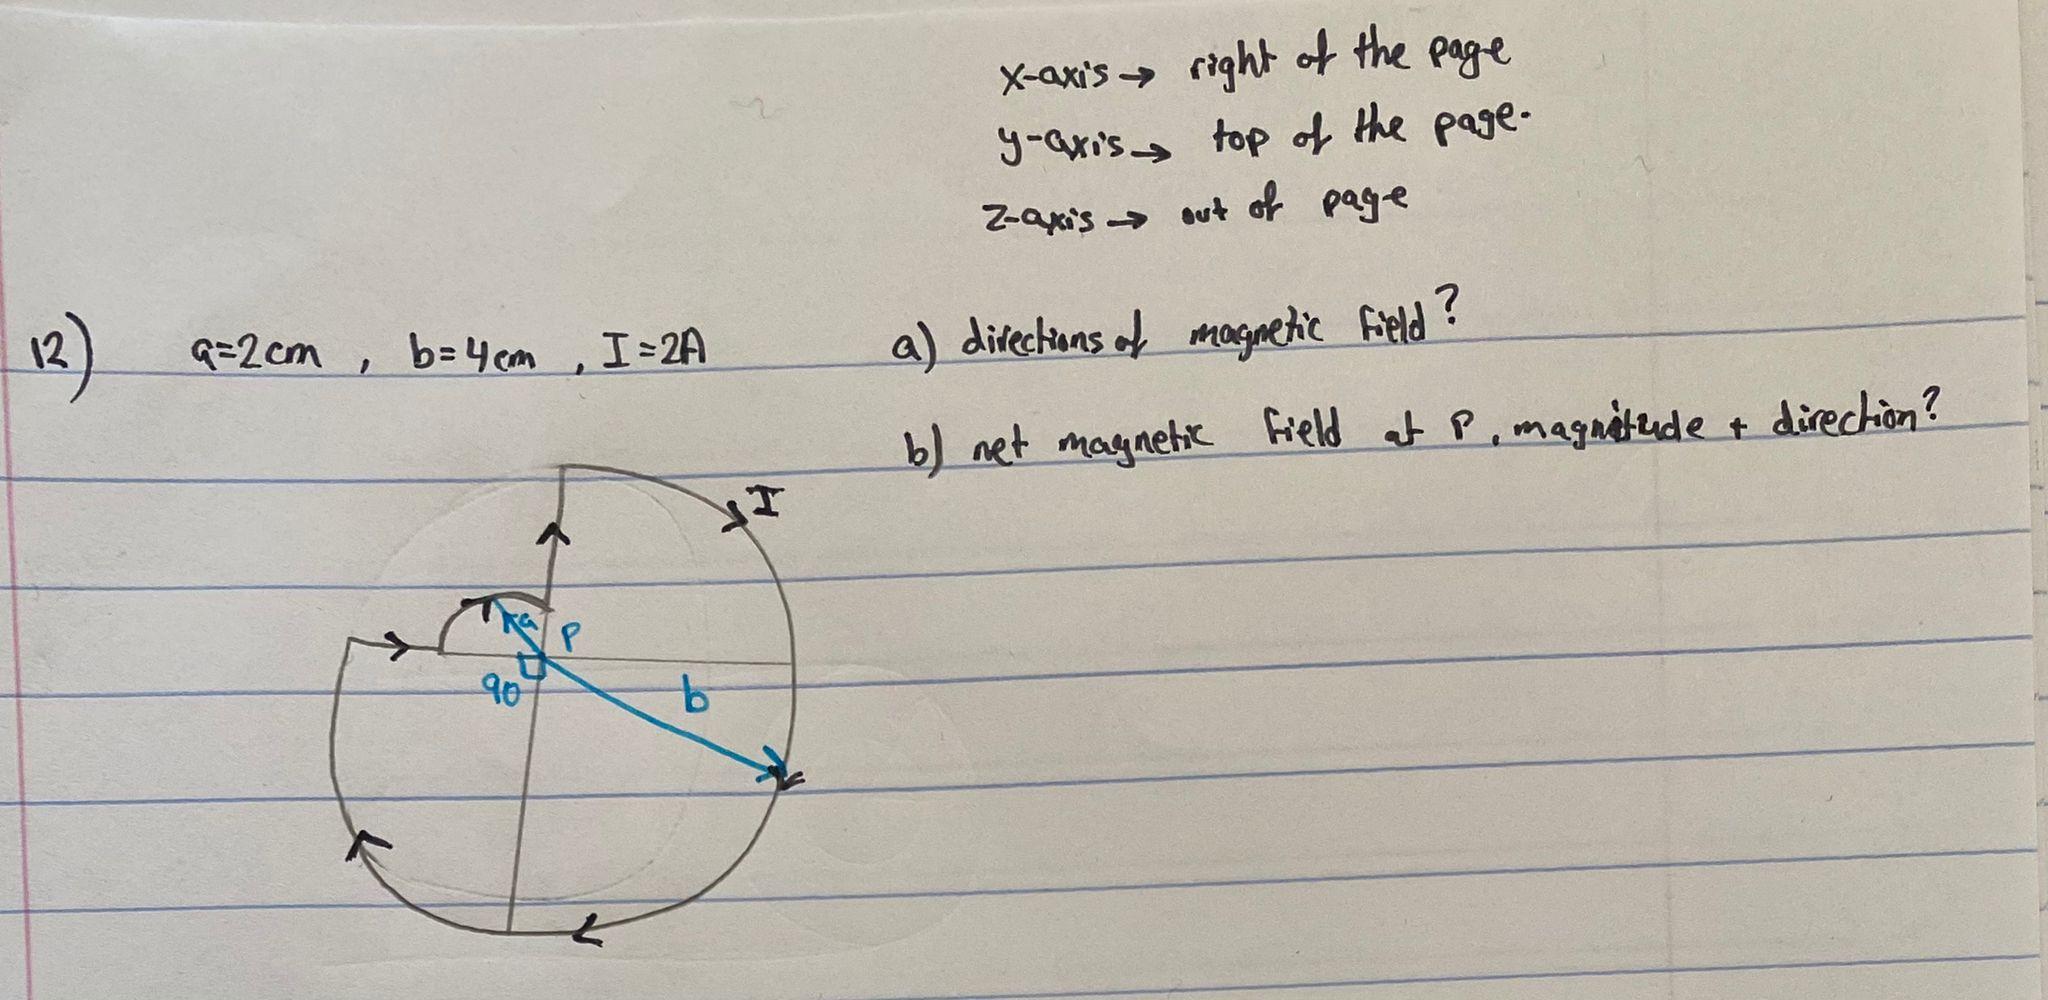 x-axis → right of the page
y-axis → top of the page.
z-axis → out of page
12) a=2cm , b=4cm , I=2A
a) directions of magnetic field?
b) net magnetic field at P, magnitude + direction?
I
a
P
90
b